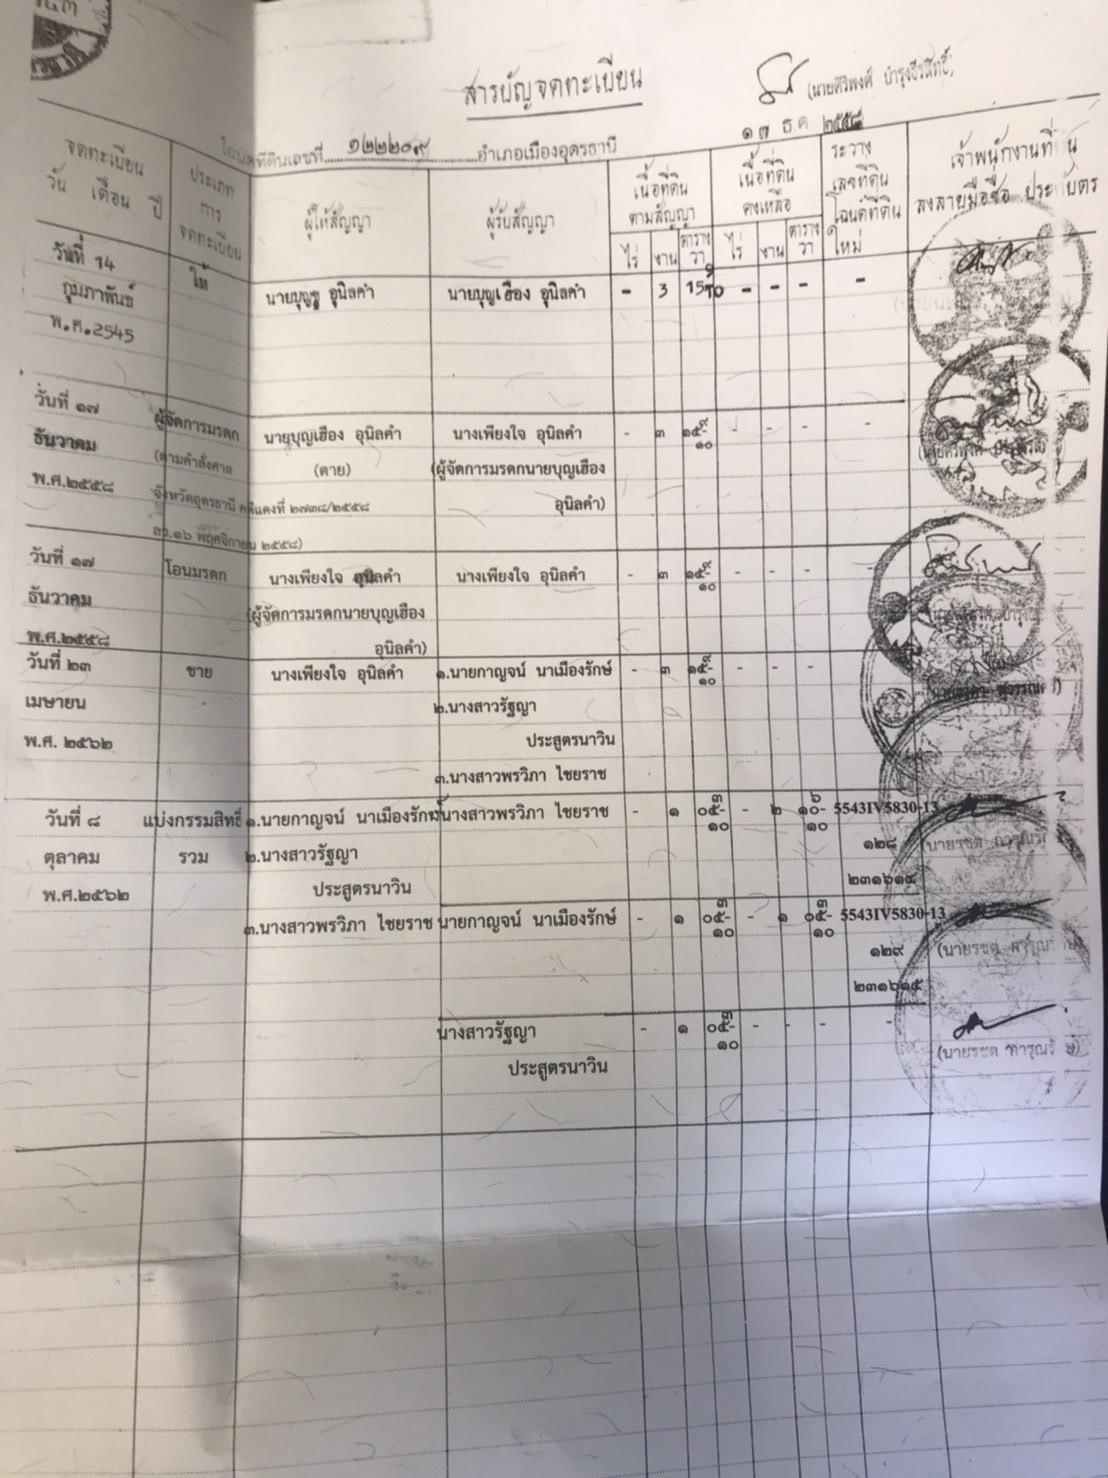 สารบัญจดทะเบียน
(นายศิริพงศ์ บำรุงธีรสิทธิ์)
๑๗ ธ.ค ๒๕๕๘
โฉนดที่ดินเลขที่ ๑๒๒๒๐๙ อำเภอเมืองอุดรธานี
จดทะเบียน วัน เดือน ปี
ประเภทการจดทะเบียน
ผู้ให้สัญญา
ผู้รับสัญญา
เนื้อที่ดินตามสัญญา
ไร่ งาน ตารางวา
เนื้อที่ดินคงเหลือ
ไร่ งาน ตารางวา
ระวาง เลขที่ดิน โฉนดที่ดินใหม่
เจ้าพนักงานที่ดิน ลงลายมือชื่อ ประทับตรา
วันที่ 14 ให้ นายบุญชู อุนิลคำ นายบุญเฮือง อุนิลคำ - 3 15 9/10 - - - -
กุมภาพันธ์
พ.ศ.2545
วันที่ ๑๗ ผู้จัดการมรดก นายบุญเฮือง อุนิลคำ นางเพียงใจ อุนิลคำ - ๓ ๑๕-๙/๑๐ - - - -
ธันวาคม (ตามคำสั่งศาล (ตาย) (ผู้จัดการมรดกนายบุญเฮือง
พ.ศ.๒๕๕๘ จังหวัดอุดรธานี คดีแดงที่ ๒๗๓๘/๒๕๕๘ อุนิลคำ)
ลว.๑๖ พฤศจิกายน ๒๕๕๘)
วันที่ ๑๗ โอนมรดก นางเพียงใจ อุนิลคำ นางเพียงใจ อุนิลคำ - ๓ ๑๕-๙/๑๐ - - - -
ธันวาคม (ผู้จัดการมรดกนายบุญเฮือง
พ.ศ.๒๕๕๘ อุนิลคำ)
วันที่ ๒๓ ขาย นางเพียงใจ อุนิลคำ ๑.นายกาญจน์ นาเมืองรักษ์ - ๓ ๑๕-๙/๑๐ - - - -
เมษายน ๒.นางสาวรัฐญา
พ.ศ. ๒๕๖๒ ประสูตรนาวิน
๓.นางสาวพรวิภา ไชยราช
วันที่ ๘ แบ่งกรรมสิทธิ์ ๑.นายกาญจน์ นาเมืองรักษ์ นางสาวพรวิภา ไชยราช - ๑ ๐๕-๓/๑๐ - ๒ ๑๐-๖/๑๐ 5543IV5830-13
ตุลาคม รวม ๒.นางสาวรัฐญา ๑๒๘
พ.ศ.๒๕๖๒ ประสูตรนาวิน ๒๓๑๖๑๔
๓.นางสาวพรวิภา ไชยราช นายกาญจน์ นาเมืองรักษ์ - ๑ ๐๕-๓/๑๐ - ๑ ๐๕-๓/๑๐ 5543IV5830-13
๑๒๙ (นายรชต การุณรักษ์)
๒๓๑๖๑๕
นางสาวรัฐญา - ๑ ๐๕-๓/๑๐ - - - -
ประสูตรนาวิน (นายรชต การุณรักษ์)